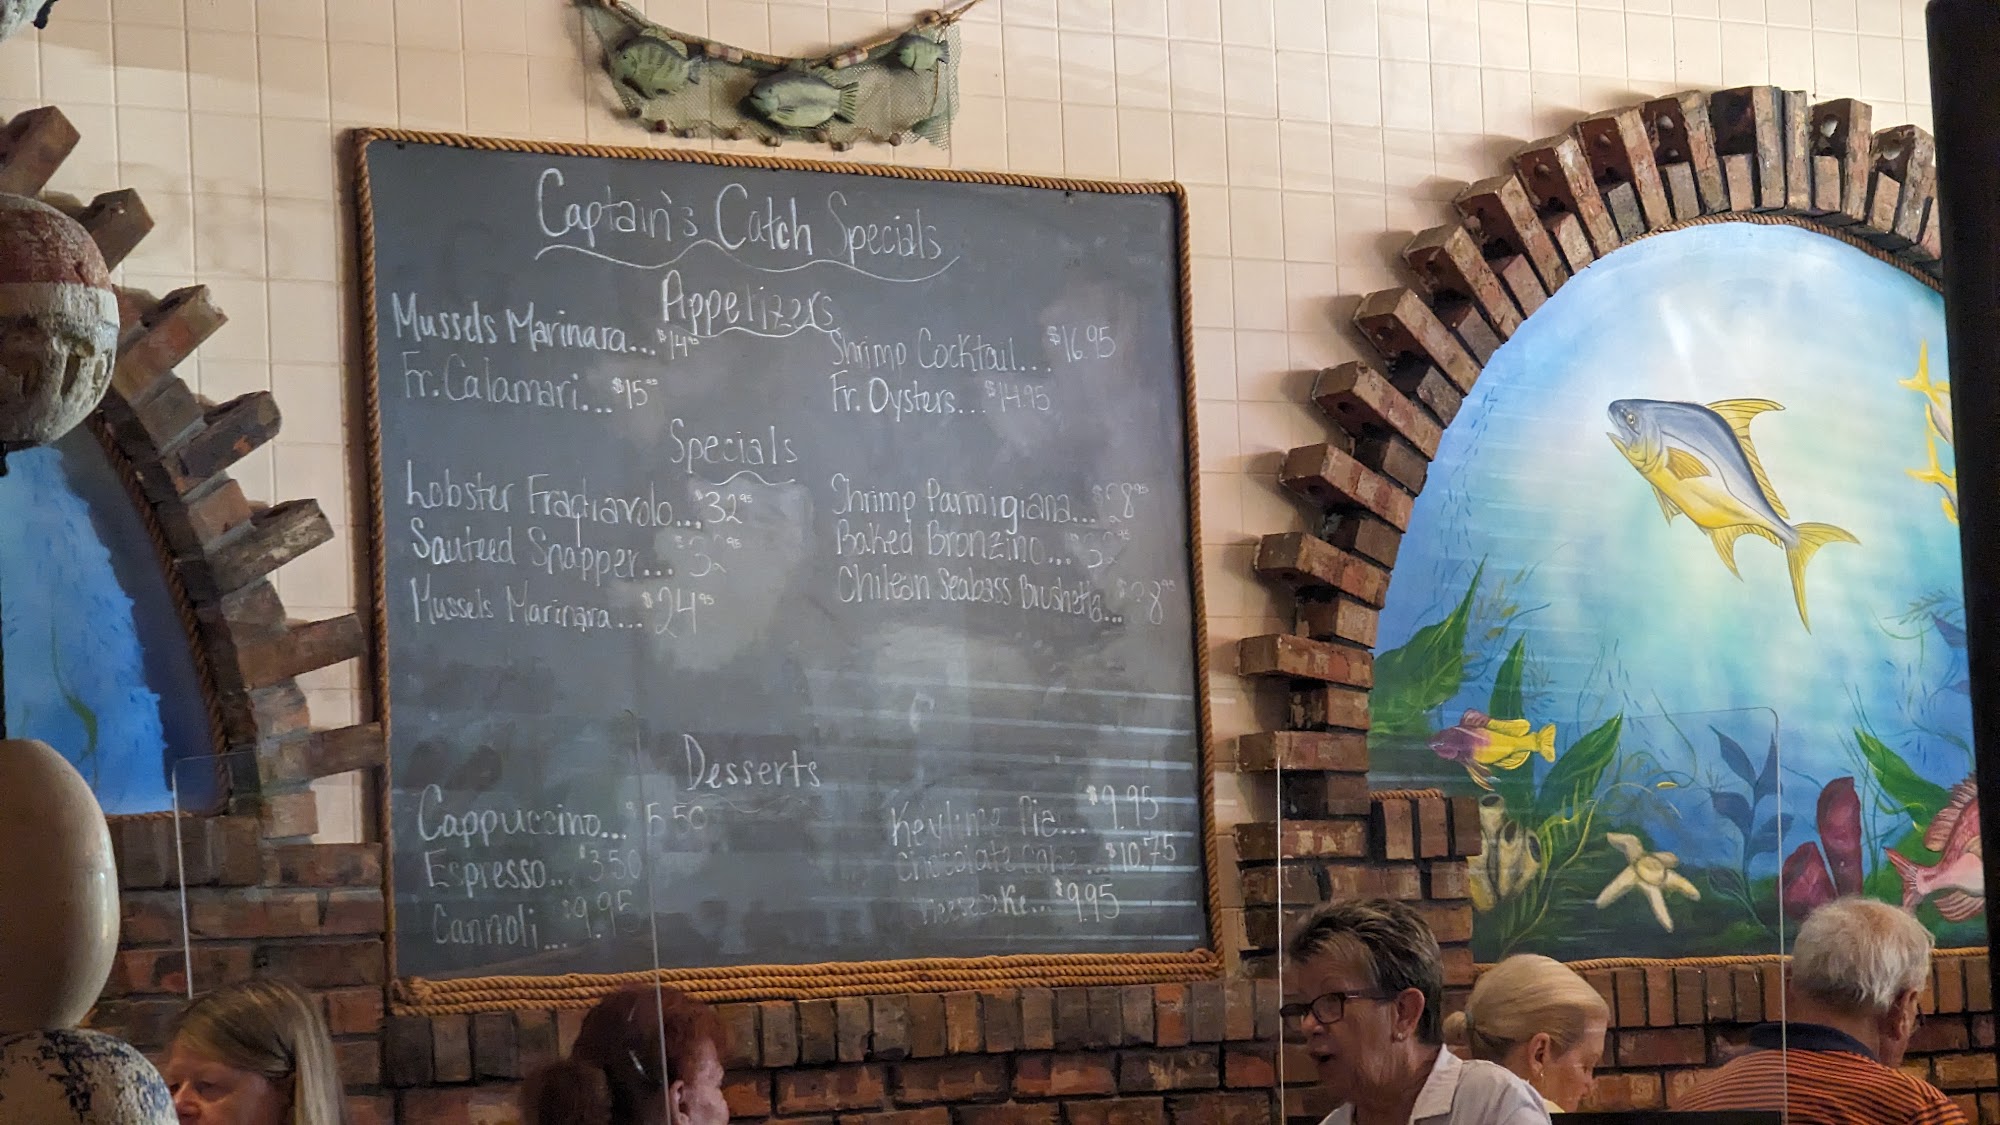 Captain's Catch Specials
Appetizers
Mussels Marinara... $14.95
Fr. Calamari... $15.95
Shrimp Cocktail... $16.95
Fr. Oysters... $14.95
Specials
Lobster Fradiavolo... $32.95
Sauteed Snapper...
Mussels Marinara... $24.95
Shrimp Parmigiana... $28.95
Baked Bronzino...
Chilean Seabass Brushetta...
Desserts
Cappuccino... $5.50
Espresso... $3.50
Cannoli... $9.95
Keylime Pie... $9.95
Chocolate Cake... $10.75
Cheesecake... $9.95